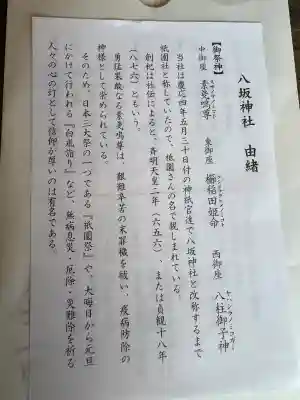 八坂神社　由緒
【御祭神】
中御座　素戔嗚尊　東御座　櫛稲田姫命　西御座　八柱御子神
スサノヲノミコト　クシイナダヒメノミコト　ヤハシラノミコガミ
当社は慶応四年五月三十日付の神祇官達で八坂神社と改称するまで
祇園社と称していたので、祇園さんの名で親しまれている。
創祀は社伝によると、斉明天皇二年（六五六）、または貞観十八年
（八七六）ともいう。
勇猛果敢なる素戔嗚尊は、艱難辛苦の末罪穢を祓い、疫病防除の
神様として崇められている。
そのため、日本三大祭の一つである『祇園祭』や、大晦日から元旦
にかけて行われる『白朮詣り』など、無病息災・厄除・災難除を祈る
人々の心の灯として信仰が篤いのは有名である。